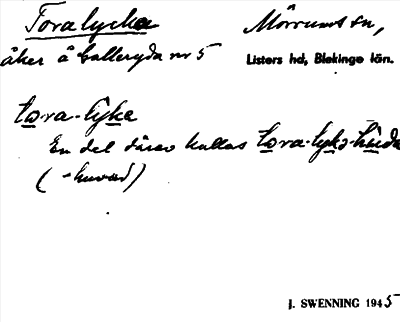 Toralycke
Mörrums sn,
åker å Galleryda nr 5
Listers hd, Blekinge län.
tora-lyke
En del därav kallas tora-lyks-huda
(-huvud)
J. SWENNING 1945